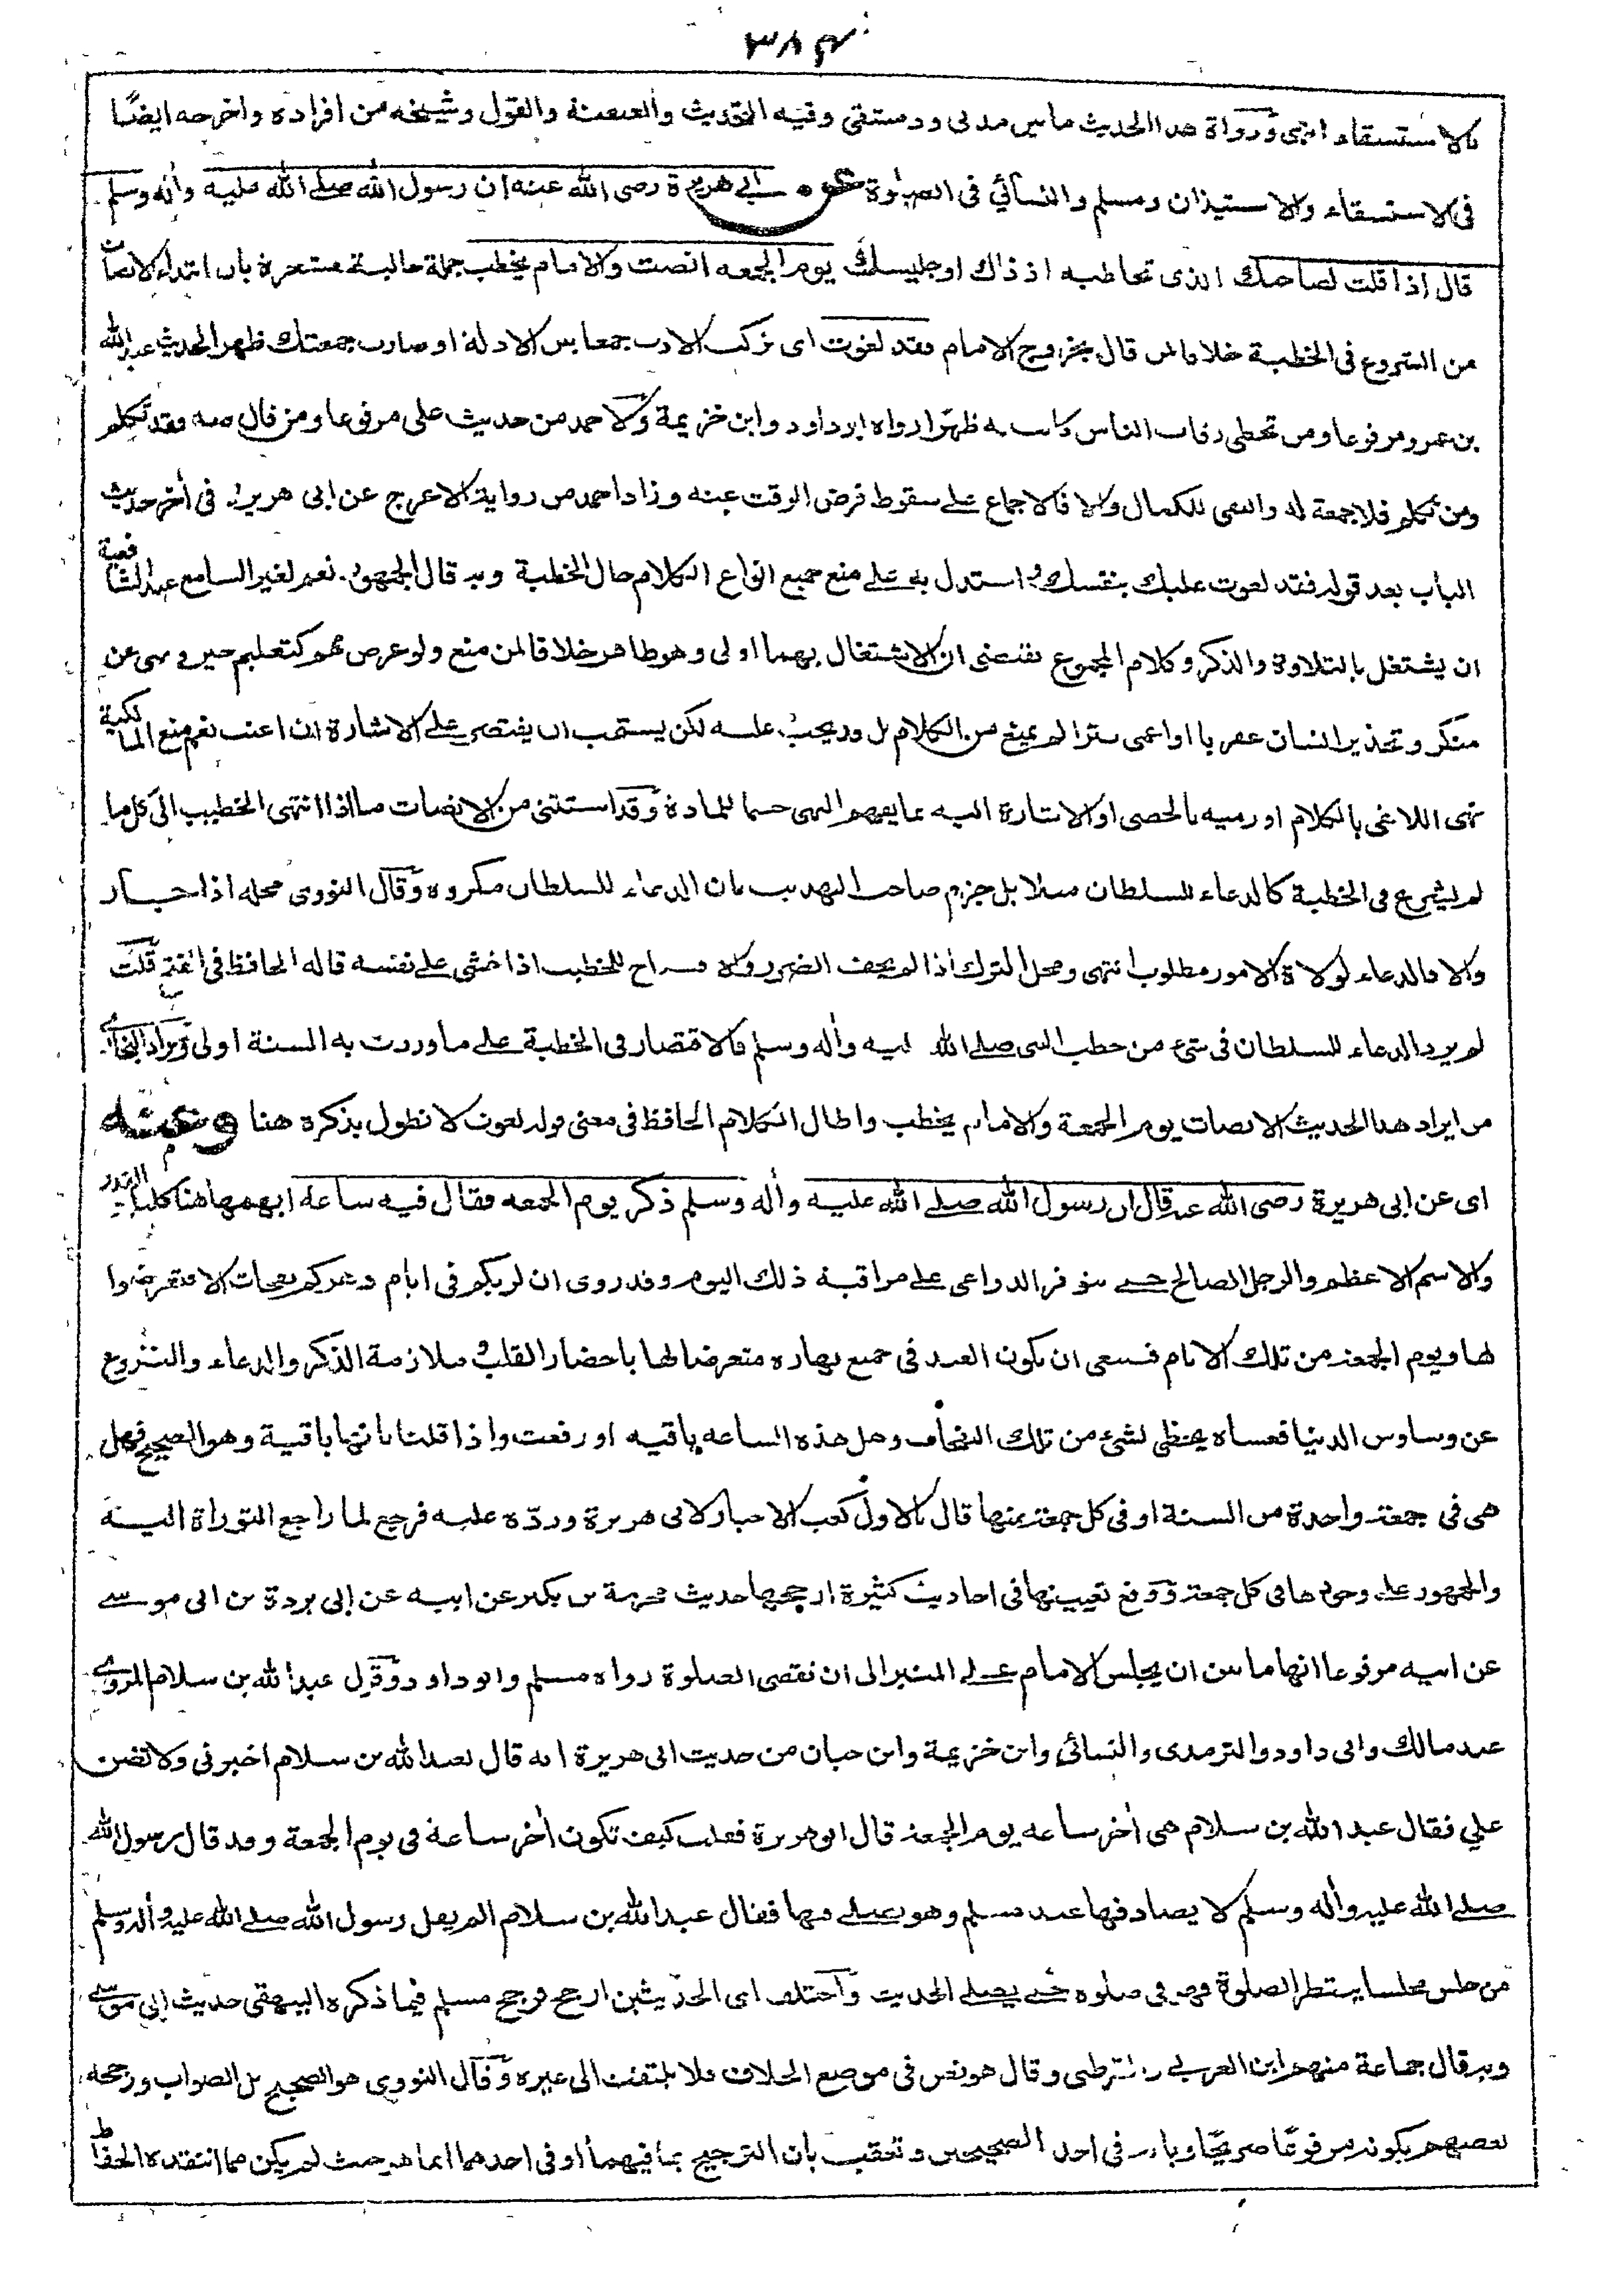 ٣٨٤
بالاستسقاء انتهى ورواة هذا الحديث ما بين مدنى ودمشقى وفيه التحديث والعنعنة والقول وشيخه من افراده واخرجه ايضًا
فى الاستسقاء والاستيذان ومسلم والنسائي فى الصلوة عن ابى هريرة رضى الله عنه ان رسول الله صلى الله عليه وأله وسلم
قال اذا قلت لصاحبك الذى تخاطبه اذ ذاك او جليسك يوم الجمعه انصت والامام يخطب جملة حالية مشعرة بان ابتداء الانصات
من الشروع فى الخطبة خلافا لمن قال بخروج الامام فقد لغوت اى تركت الادب جمعا بين الادلة او صارت جمعتك ظهرا لحديث عبد الله
بن عمرو مرفوعا ومن تخطى رقاب الناس كانت له ظهرًا رواه ابو داود وابن خزيمة ولاحمد من حديث على مرفوعا ومن قال صه فقد تكلم
ومن تكلم فلا جمعة له والنفى للكمال والا فالاجماع على سقوط فرض الوقت عنه وزاد احمد من رواية الاعرج عن ابى هريرة فى أخر حديث
الباب بعد قوله فقد لغوت عليك بنفسك واستدل به على منع جميع انواع الكلام حال الخطبة وبه قال الجمهور نعم لغير السامع عند الشافعية
ان يشتغل بالتلاوة والذكر وكلام المجموع يقتضى ان الاشتغال بهما اولى وهو ظاهر خلافا لمن منع ولو عرض مهم كتعليم خير ونهى عن
منكر وتحذير انسان عقربا او اعمى بئرا لم يمنع من الكلام بل قد يجب عليه لكن يستحب ان يقتصر على الاشارة ان اغنت نعم منع المالكية
نهى اللاغى بالكلام او رميه بالحصى او الاشارة اليه بما يفهم النهى حسما للمادة وقد استثنى من الانصات ما اذا انتهى الخطيب الى كل ما
لم يشرع فى الخطبة كالدعاء للسلطان مثلا بل جزم صاحب التهذيب بان الدعاء للسلطان مكروه وقال النووى محله اذا جاز
والا فالدعاء لولاة الامور مطلوب انتهى ومحل الترك اذا لم يخف الضرر والا فيباح للخطيب اذا خشى على نفسه قاله الحافظ فى الفتح قلت
لم يرد الدعاء للسلطان فى شئ من خطب النبى صلى الله عليه وأله وسلم فالاقتصار فى الخطبة على ما وردت به السنة اولى ومراد البخارى
من ايراد هذا الحديث الانصات يوم الجمعة والامام يخطب واطال الكلام الحافظ فى معنى قوله لغوت لا نطول بذكره هنا وعنه
اى عن ابى هريرة رضى الله عنه قال ان رسول الله صلى الله عليه وأله وسلم ذكر يوم الجمعه فقال فيه ساعة ابهمها هنا كليلة القدر
والاسم الاعظم والرجل الصالح حتى تتوفر الدواعى على مراقبة ذلك اليوم وقد روى ان لربكم فى ايام دهركم نفحات الا فتعرضوا
لها ويوم الجمعة من تلك الايام فينبغى ان يكون العبد فى جميع نهاره متعرضا لها باحضار القلب وملازمة الذكر والدعاء والنزوع
عن وساوس الدنيا فعساه يحظى بشئ من تلك النفحات وهل هذه الساعه باقيه او رفعت واذا قلنا بانها باقية وهو الصحيح فهل
هى فى جمعة واحدة من السنة او فى كل جمعة منها قال بالاول كعب الاحبار لابى هريرة وردّه عليه فرجع لما راجع التوراة اليه
والجمهور على وجودها فى كل جمعة ووقع تعيينها فى احاديث كثيرة ارجحها حديث مخرمة بن بكير عن ابيه عن ابى بردة بن ابى موسى
عن ابيه مرفوعا انها ما بين ان يجلس الامام على المنبر الى ان تقضى الصلوة رواه مسلم وابو داود وقول عبد الله بن سلام المروى
عند مالك وابى داود والترمذى والنسائى وابن خزيمة وابن حبان من حديث ابى هريرة انه قال لعبد الله بن سلام اخبرنى ولا تضن
علي فقال عبد الله بن سلام هى أخر ساعه يوم الجمعة قال ابو هريرة فقلت كيف تكون أخر ساعة فى يوم الجمعة وقد قال رسول الله
صلى الله عليه وأله وسلم لا يصادفها عبد مسلم وهو يصلى فيها فقال عبد الله بن سلام الم يقل رسول الله صلى الله عليه وأله وسلم
من جلس مجلسا ينتظر الصلوة فهو فى صلوة حتى يصلى الحديث واختلف اى الحديثين ارجح فرجح مسلم فيما ذكره البيهقى حديث ابى موسى
وبه قال جماعة منهم ابن العربى والقرطبى وقال هو نص فى موضع الخلاف فلا يلتفت الى غيره وقال النووى هو الصحيح بل الصواب ورجحه
بعضهم بكونه مرفوعًا صريحًا وبانه فى احد الصحيحين وتعقب بان الترجيح بما فيهما أو فى احدهما انما هو حيث لم يكن مما انتقده الحفاظ